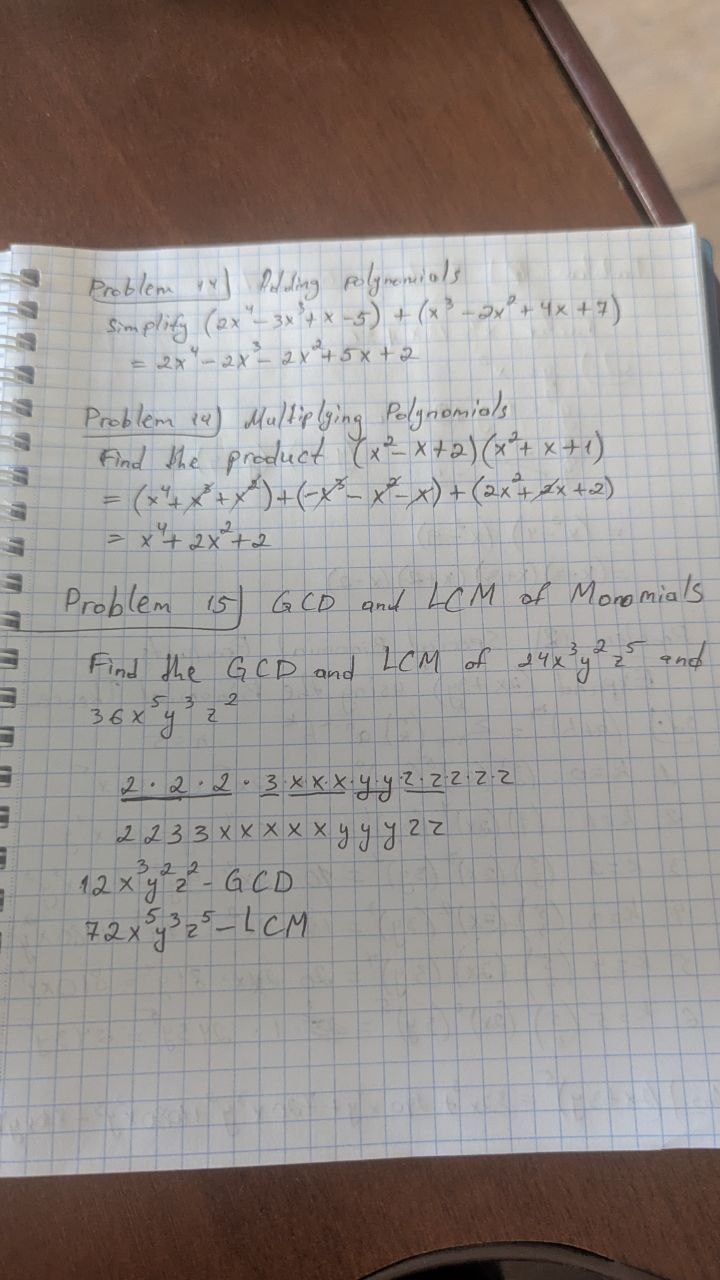 Problem 14) Adding polynomials
Simplify (2x⁴ - 3x³ + x - 5) + (x³ - 2x² + 4x + 7)
= 2x⁴ - 2x³ - 2x² + 5x + 2
Problem 14) Multiplying Polynomials
Find the product (x² - x + 2)(x² + x + 1)
= (x⁴ + x³ + x²) + (-x³ - x² - x) + (2x² + 2x + 2)
= x⁴ + 2x² + 2
Problem 15) GCD and LCM of Monomials
Find the GCD and LCM of 24x³y²z⁵ and
36x⁵y³z²
2 · 2 · 2 · 3 · x · x · x · y · y · z · z · z · z · z
2 2 3 3 x x x x x y y y z z
12x³y²z² - GCD
72x⁵y³z⁵ - LCM